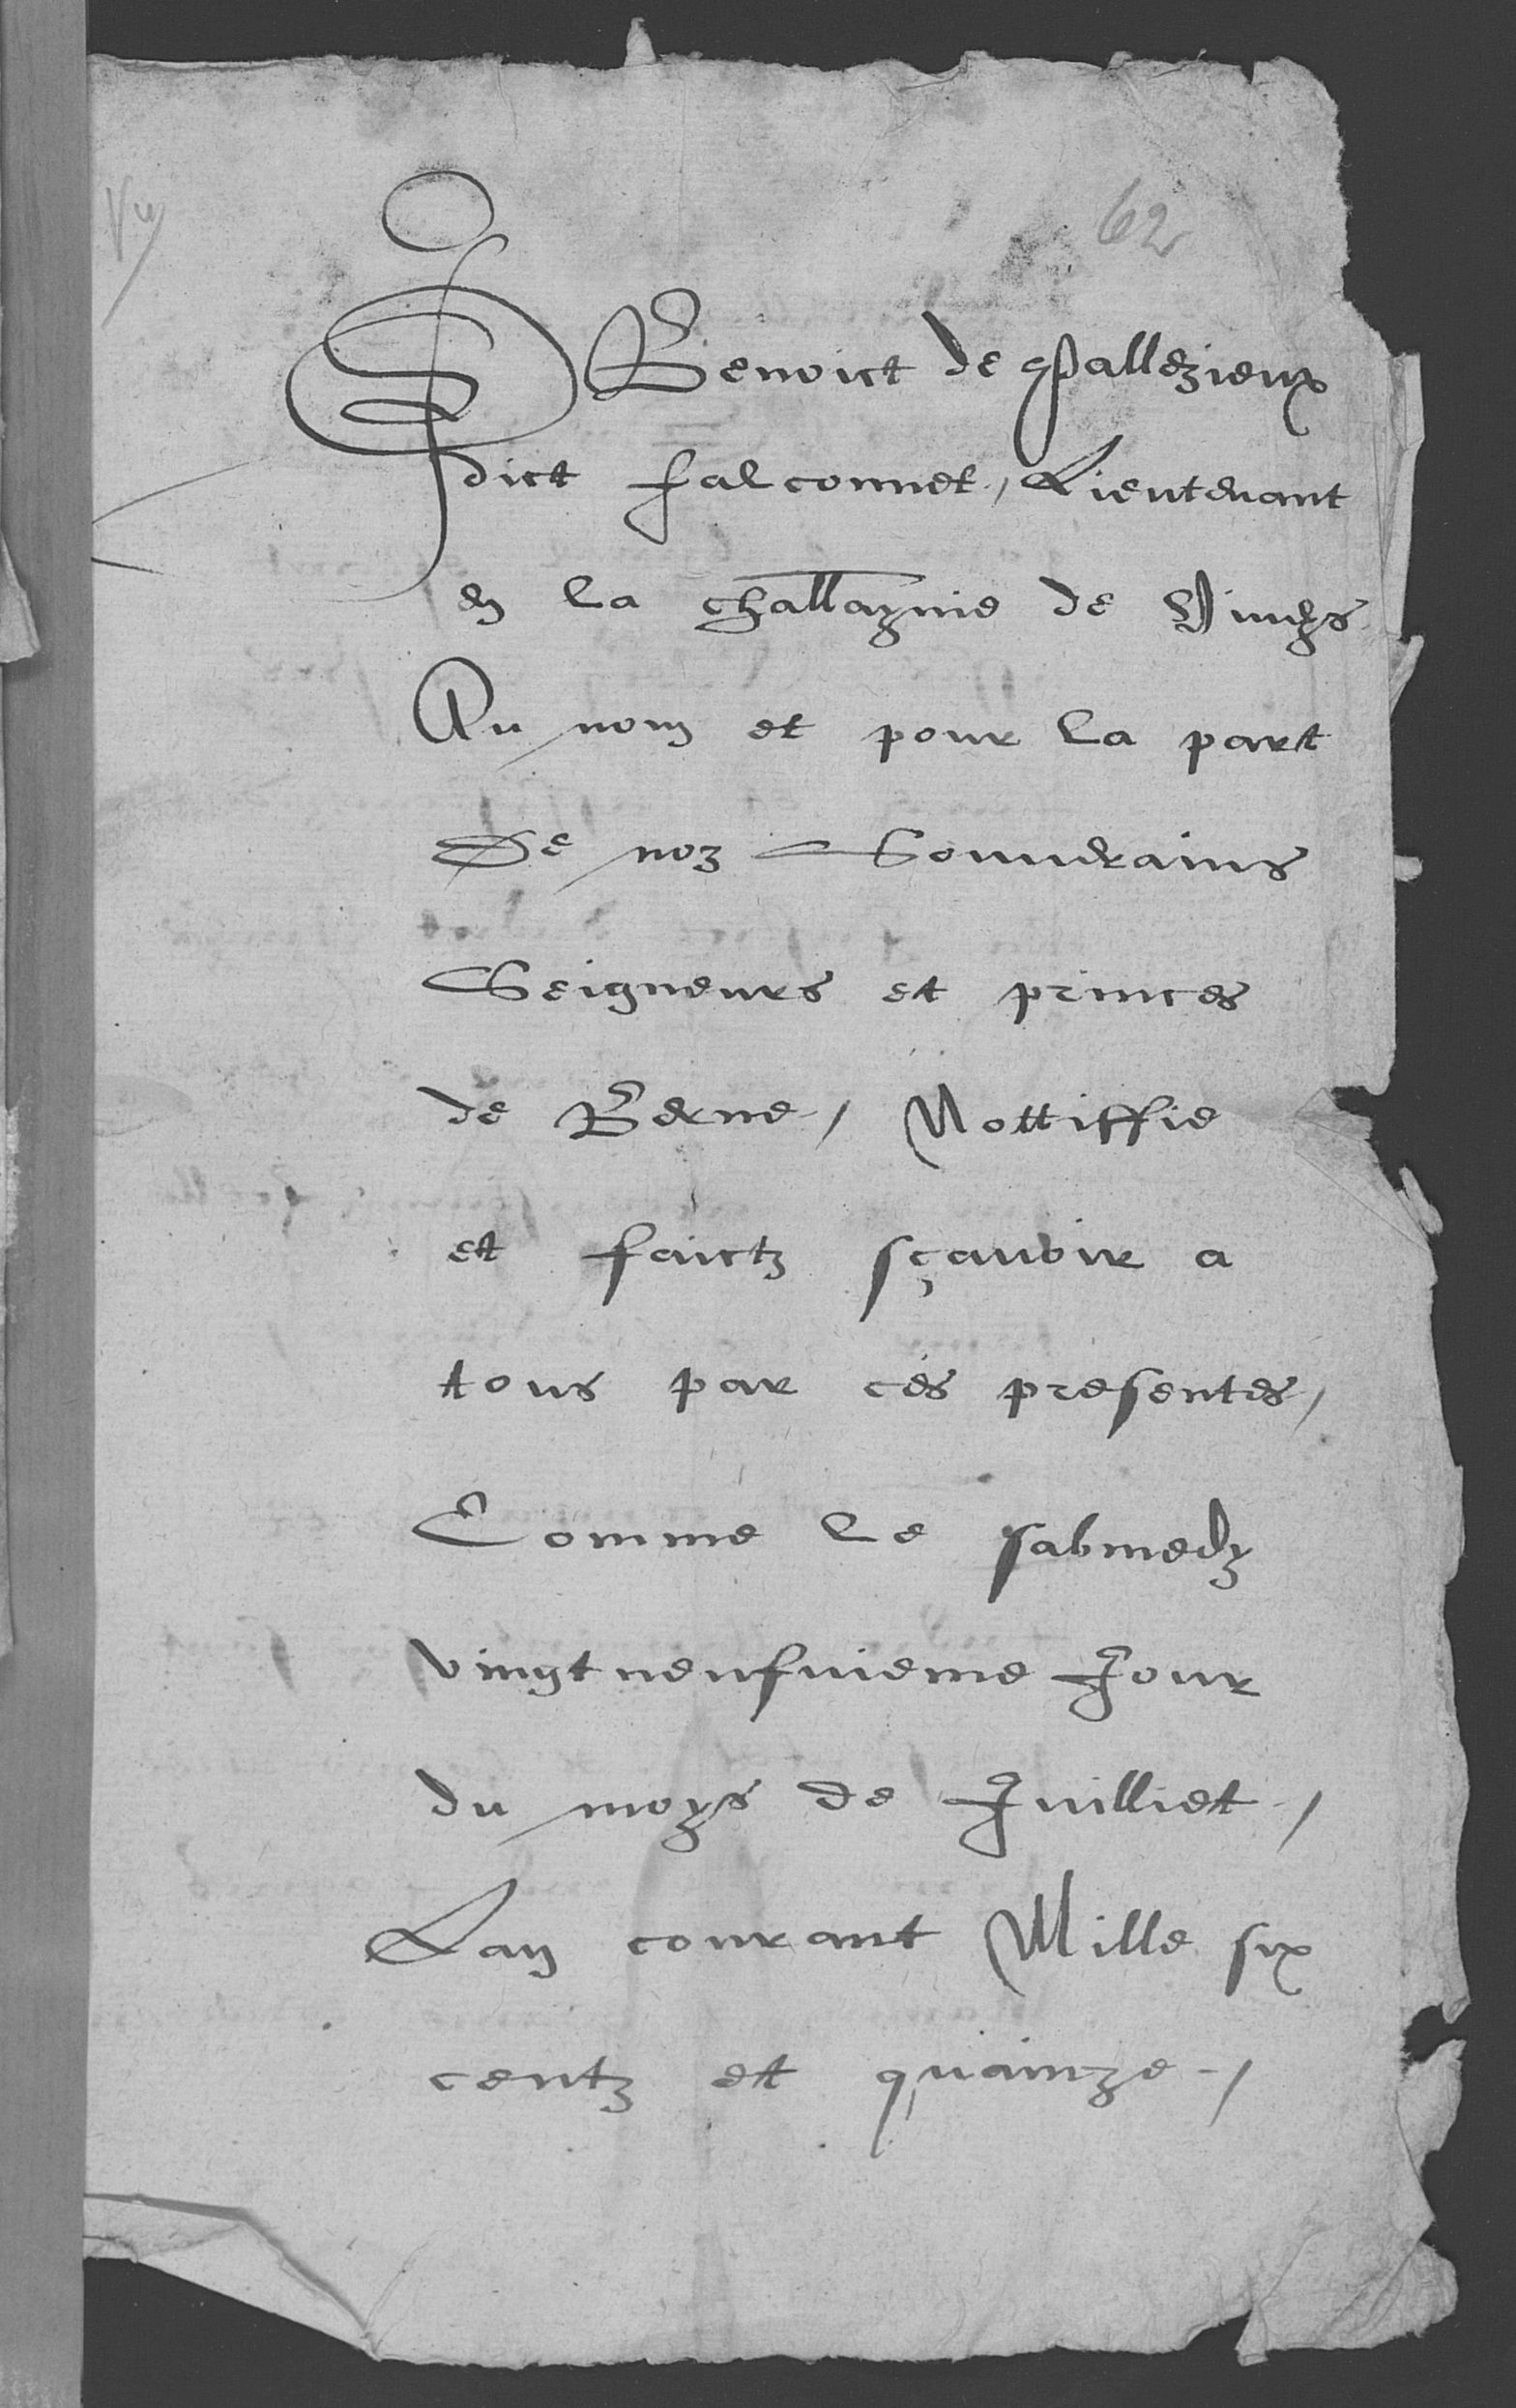 62
Benoict de Pallezieux
dict falconnet, Lieutenant
en la challaynie de Viueys
Au nom et pour la part
De noz Souuerains
Seigneurs et princes
de Berne, Nottiffie
et faictz sçauoir a
tous par ces presentes,
Comme le sabmedy
vingtneufuieme Jour
du moys de Juilliet,
Lan courant Mille six
centz et quainze,